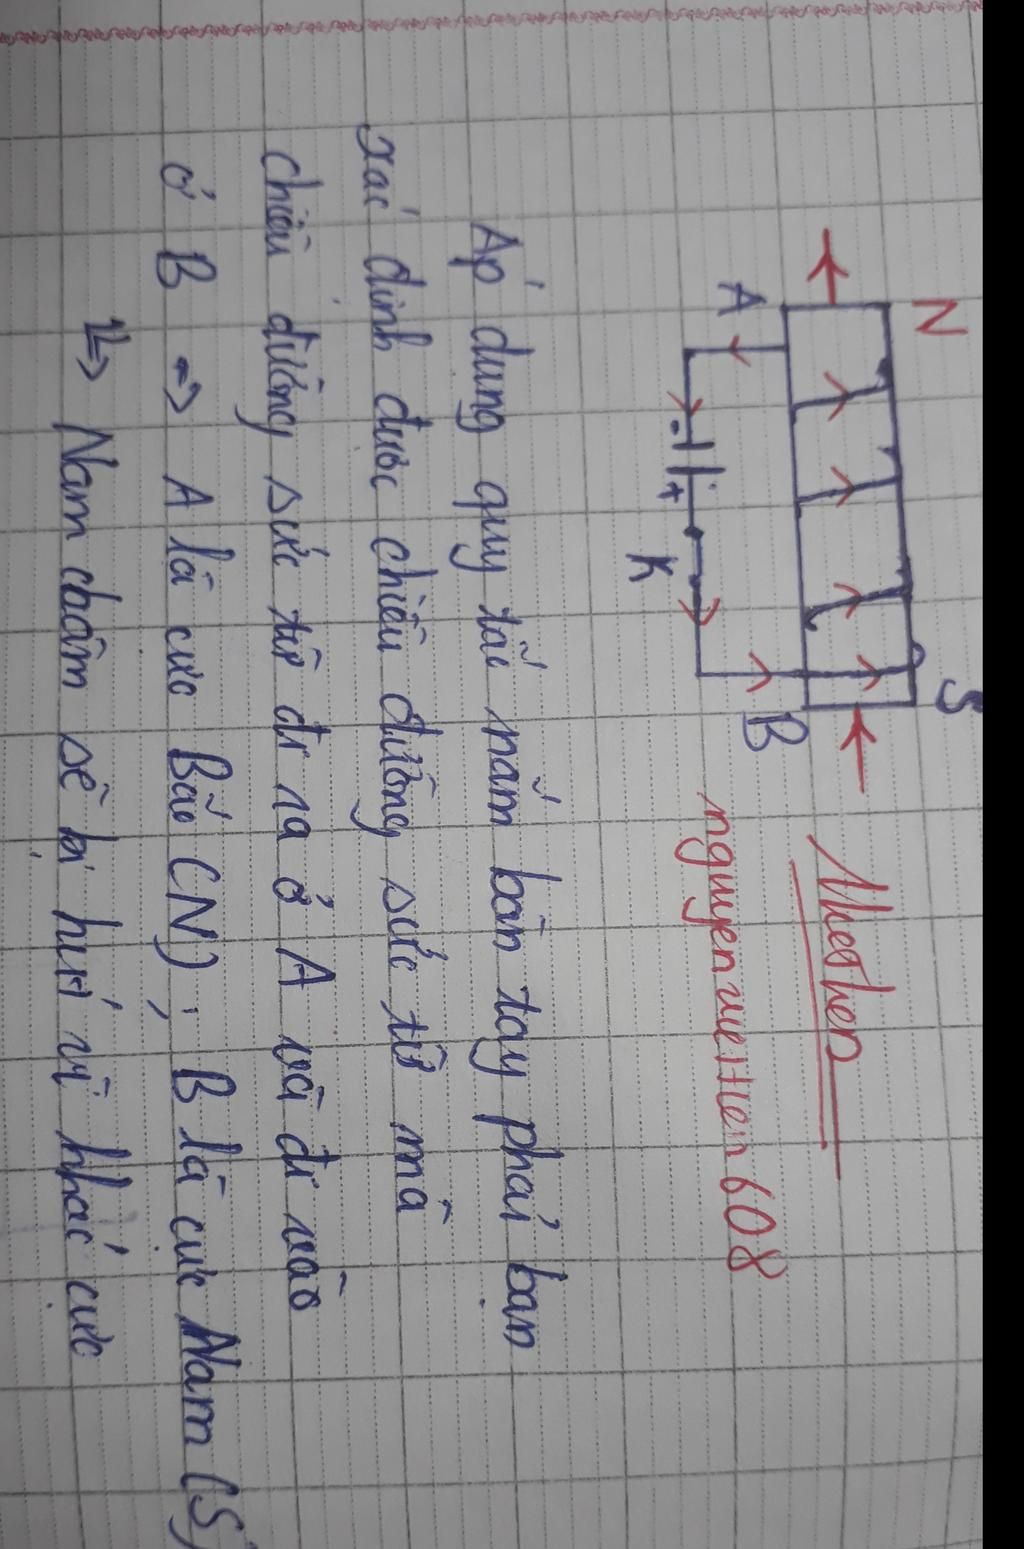 N S
A B
- +
K
nguyenvietien608
Áp dụng quy tắc nắm bàn tay phải bạn
xác định được chiều đường sức từ mà
chiều đường sức từ đi ra ở A và đi vào
ở B => A là cực Bắc (N), B là cực Nam (S)
=> Nam châm sẽ bị hút vì khác cực